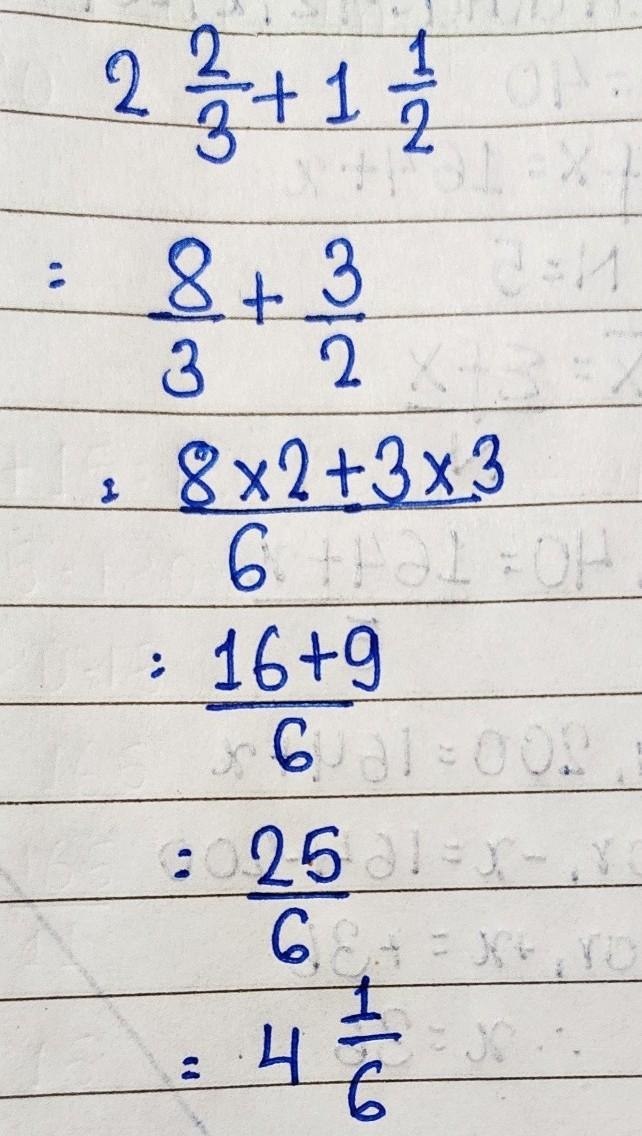 2 2/3 + 1 1/2
= 8/3 + 3/2
= 8×2+3×3/6
= 16+9/6
= 25/6
= 4 1/6